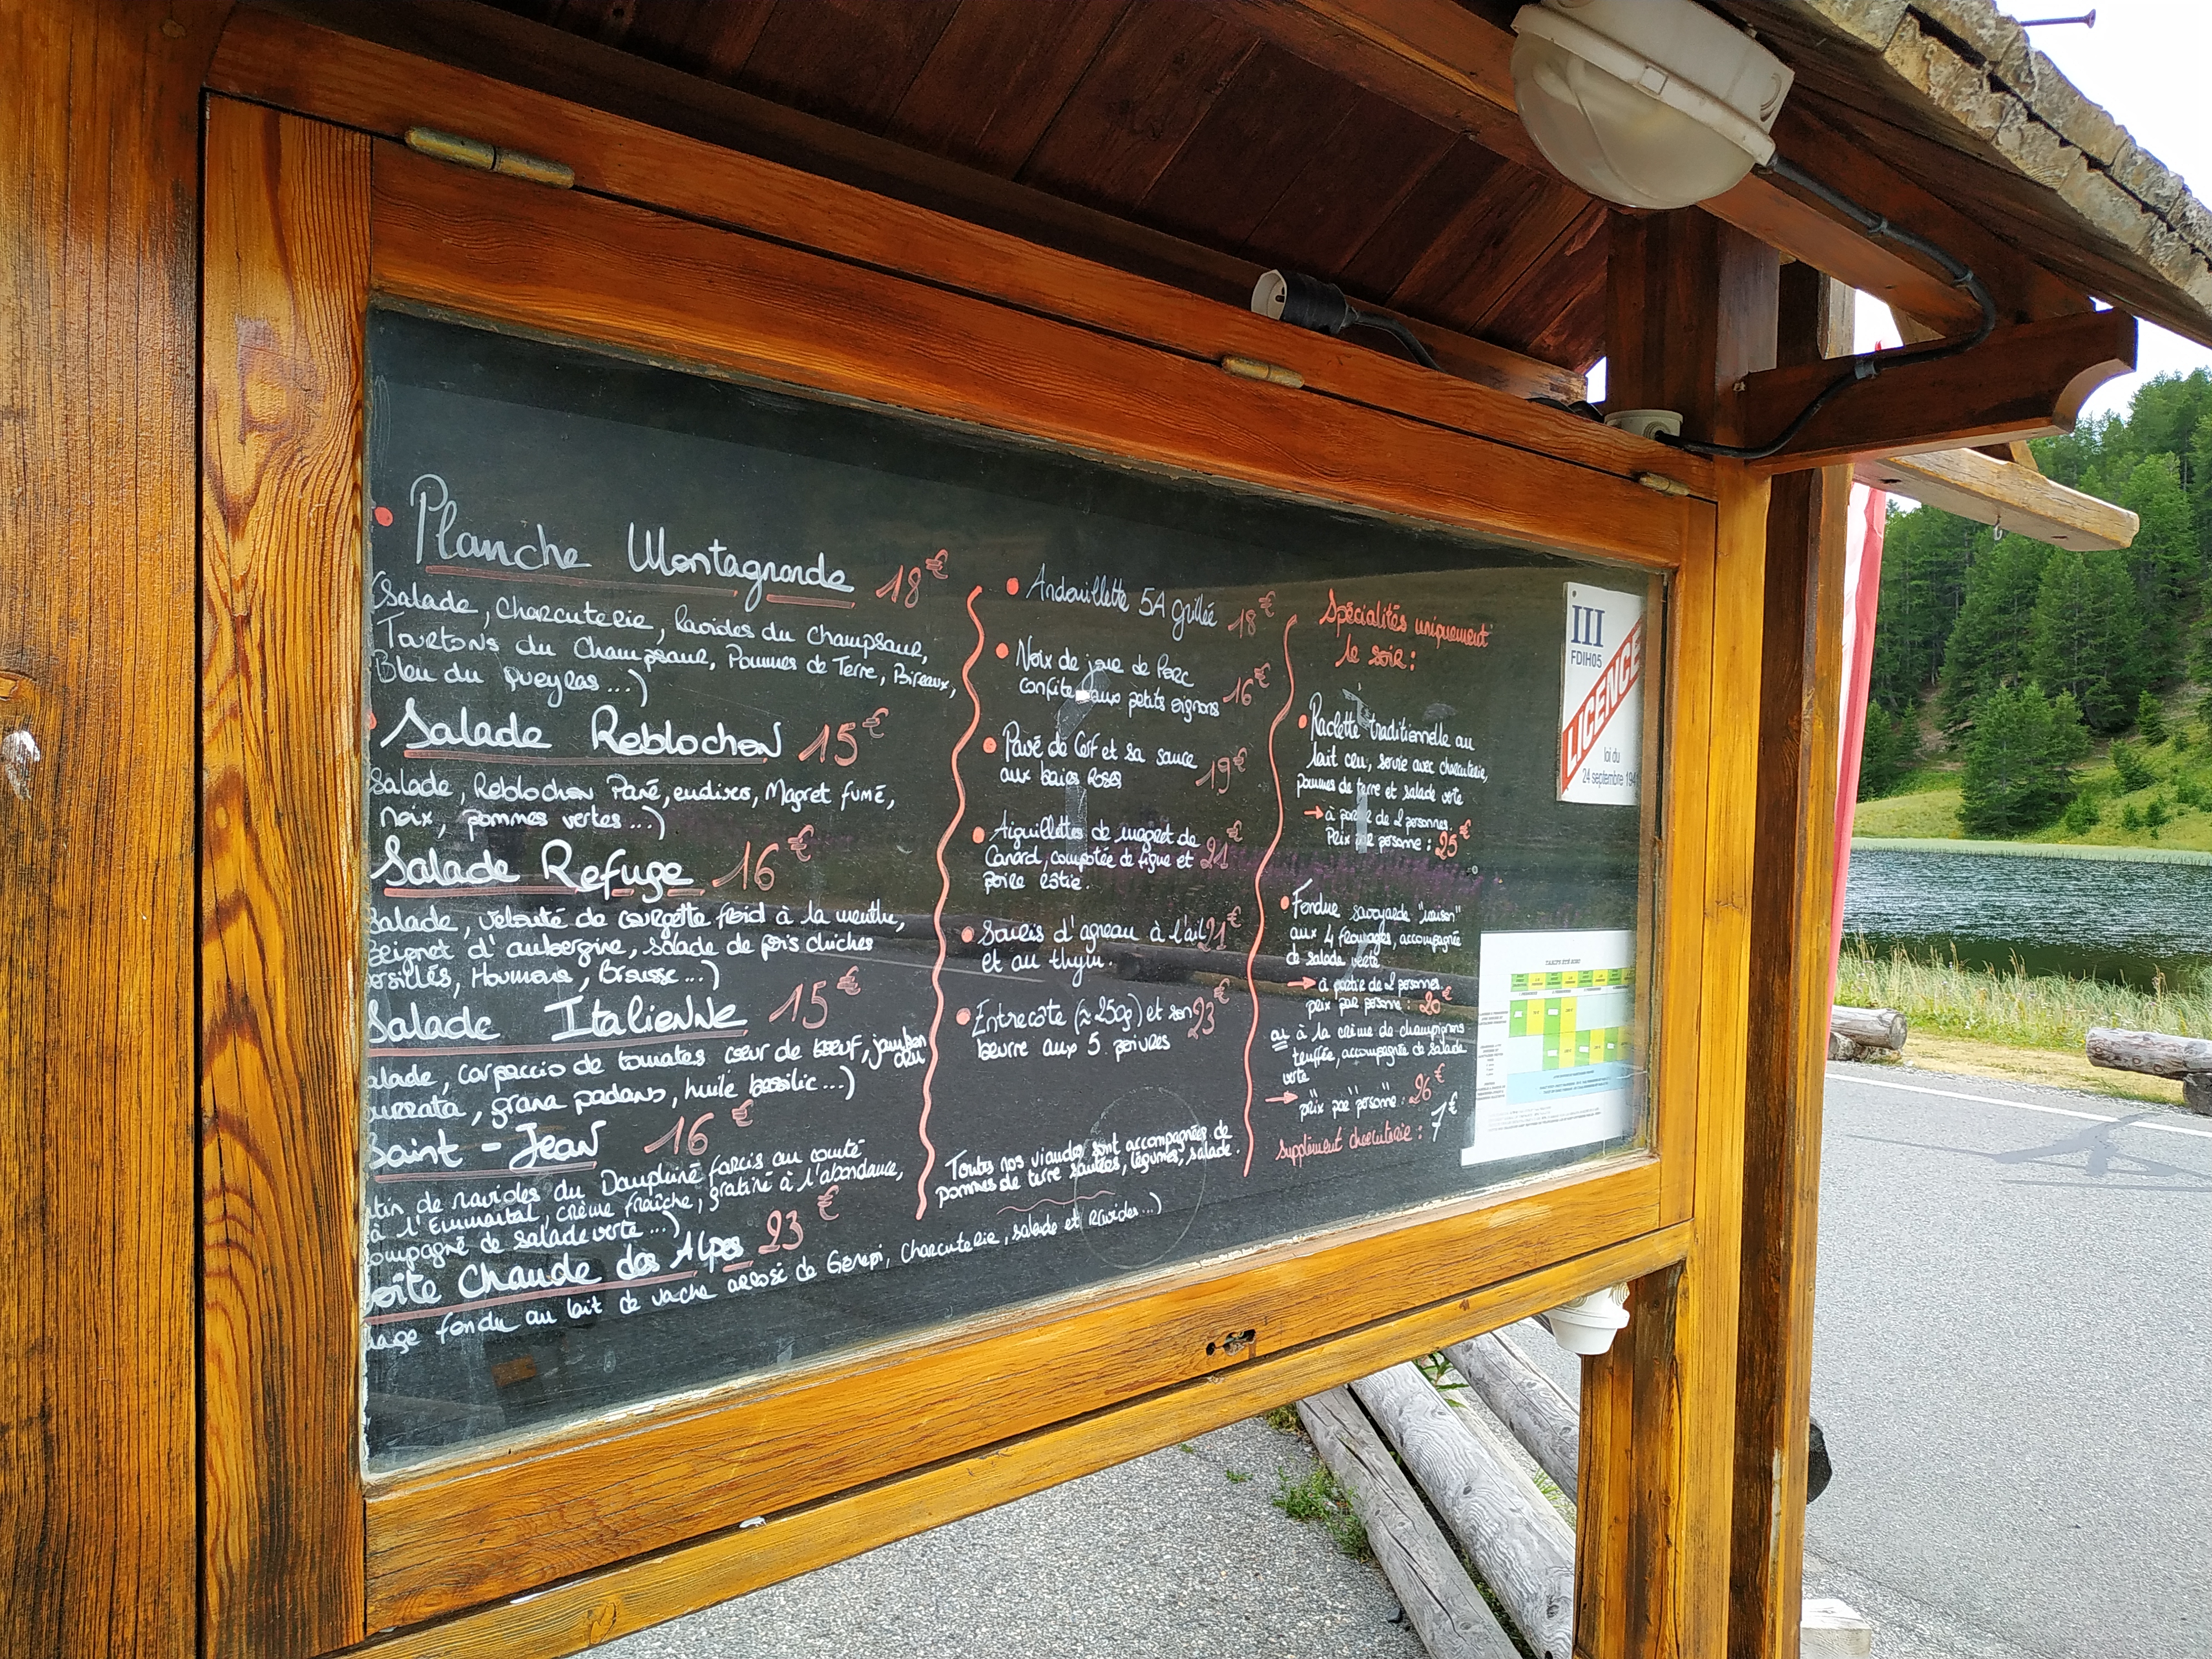 Planche Montagnarde 18€
(Salade, Charcuterie, Ravioles du Champsaur,
Tourtons du Champsaur, Pommes de Terre, Poireaux,
Bleu du Queyras...)
Salade Reblochon 15€
Salade, Reblochon Pané, endives, Magret fumé,
noix, pommes vertes...)
Salade Refuge 16€
Salade, velouté de courgette froid à la menthe,
beignet d'aubergine, salade de pois chiches
persillés, Houmous, Brousse...)
Salade Italienne 15€
alade, carpaccio de tomates cœur de bœuf, jambon cru
burrata, grana padano, huile basilic...)
Saint-Jean 16€
tin de ravioles du Dauphiné farcis au comté
à l'Emmental, crème fraîche, gratiné à l'abondance,
ompagné de salade verte...)
oîte Chaude des Alpes 23€
mage fondu au lait de vache arrosé de Génépi, Charcuterie, salade et Ravioles...)
Andouillette 5A grillée 18€
Noix de joue de Porc
confite aux petits oignons 16€
Pavé de Cerf et sa sauce
aux baies Roses 19€
Aiguillettes de magret de
Canard, compotée de figue et 21€
poire rôtie.
Souris d'agneau à l'ail 21€
et au thym.
Entrecôte (≈250g) et son 23€
beurre aux 5 poivres
Toutes nos viandes sont accompagnées de
pommes de terre sautées, légumes, salade.
Spécialités uniquement
le soir :
Raclette traditionnelle au
lait cru, servie avec charcuterie,
pommes de terre et salade verte
→ à partir de 2 personnes.
Prix par personne : 25€
Fondue savoyarde "maison"
aux 4 fromages, accompagnée
de salade verte
→ à partir de 2 personnes.
prix par personne : 20€
ou à la crème de champignons
truffée, accompagnée de salade
verte
→ prix par personne : 26€
supplément charcuterie : 7€
III
FDIH05
LICENCE
loi du
24 septembre 1941